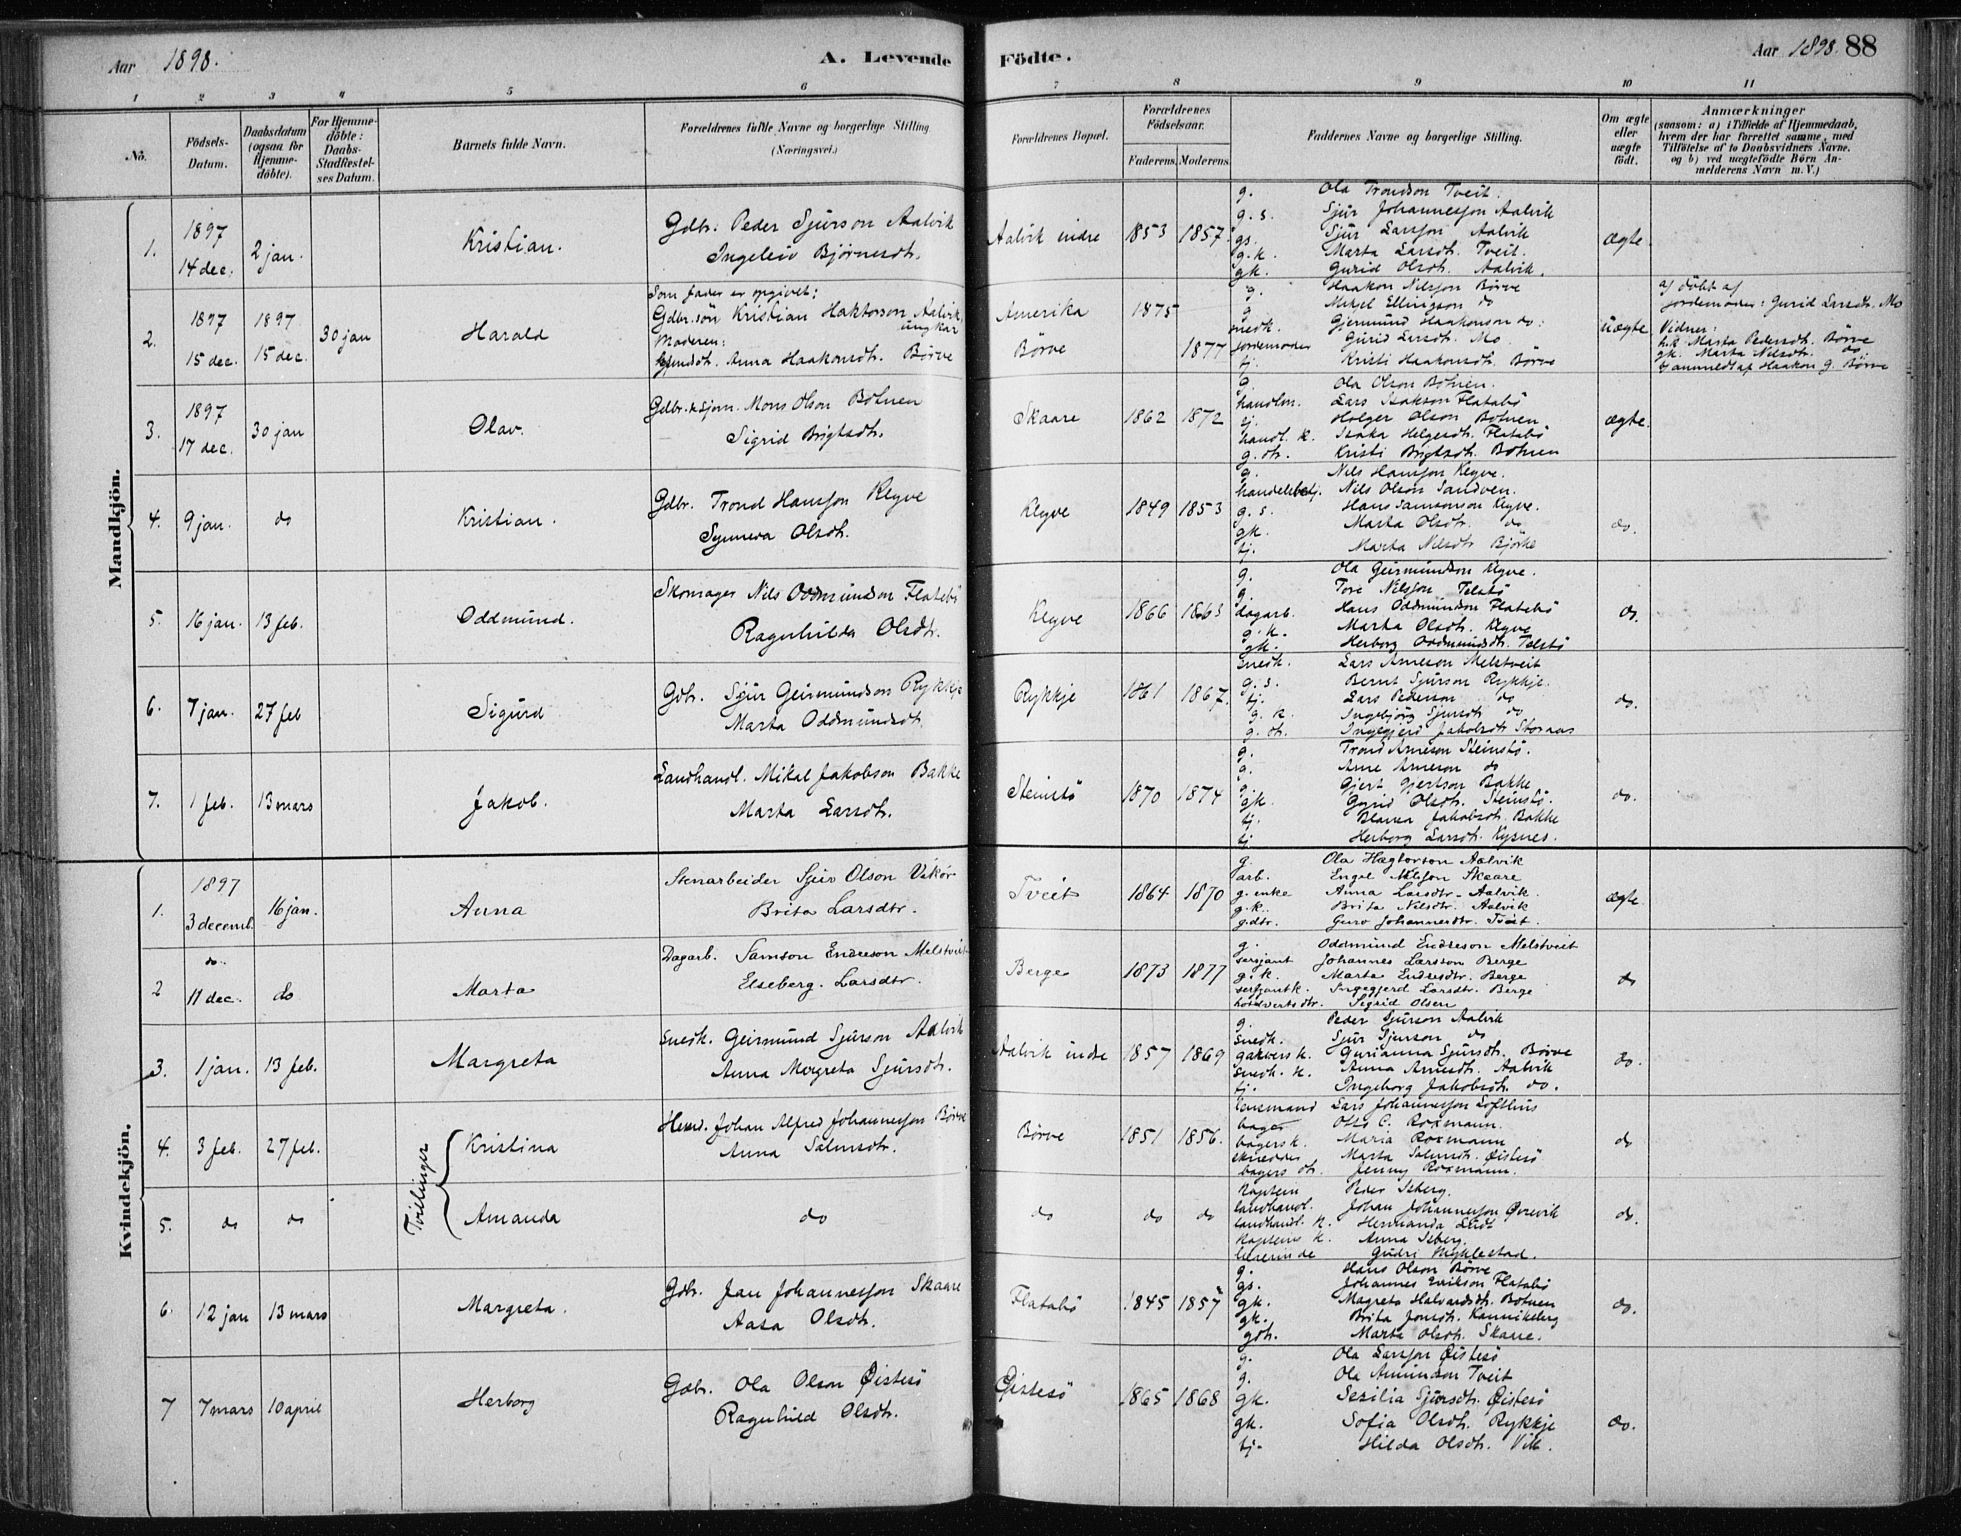 Aar 1898. A. Levende Födte. Aar 1898. 88
1 2 3 4 5 6 7 8 9 10 11
No.
Födsels-Datum.
Daabsdatum (ogsaa for Hjemme-döbte).
For Hjemme-döbte: Daabs-Stadfæstel-ses Datum.
Barnets fulde Navn.
Forældrenes fulde Navne og borgerlige Stilling
(Næringsvei.)
Forældrenes Bopæl.
Forældrenes Födselsaar.
Faderens. Moderens.
Faddernes Navne og borgerlige Stilling.
Om ægte eller uægte födt.
Anmærkninger
(saasom: a) i Tilfælde af Hjemmedaab,
hvem der har forrettet samme, med
Tilföielse af to Daabsvidners Navne.
og b) ved uægtefödte Börn An-
melderens Navn m. V.)
Mandkjön.
1. 1897 14 dec. 2 jan. Kristian.
Gdbr. Peder Sjurson Aalvik
Ingeleiv Bjørnesdt.
Aalvik indre 1853 1857
g. Ola Trondson Tveit.
g. s. Sjur Johannesson Aalvik
gs. Sjur Larsson Aalvik
g.k. Marta Larsdt. Tveit.
gk. Gurid Olsdt. Aalvik.
ægte.
2. 1897 15 dec. 1897 15 dec. 30 jan Harald
Som fader er opgivet:
Gdbr.søn Kristian Haktorson Aalvik, ungkar
Moderen:
Anna Haakonsdt. Børve
Amerika 1875
Børve 1877
g. Haakon Nilsson Børve
g Mikel Ellingson do
snedk. Gjermund Haakonson do.
jordemoder Gurid Larsdt. Mo
tj. Kristi Haakonsdt. Børve
uægte
a) døbt af
jordemoder: Gurid Larsdt. Mo
Vidner:
Marta Pedersdt. Børve
gk. Marta Nilsdt. do
b) anmeldt af Haakon g. Børve
3. 1897 17 dec. 30 jan Olav.
Gdbr. Mons Olson Botnen
Sigrid Brigtsdt.
Skaare 1862 1872
g. Ola Olson Botnen.
handlm. Lars Isakson Flatabø
tj. Holger Olson Botnen
handl. k. Isaka Helgesdt. Flatabø
g. dt. Kristi Brigtsdt. Botnen
ægte.
4. 9 jan. do Kristian.
Gdbr. Trond Hansson Klyve
Synneva Olsdt.
Klyve 1849 1853
g. Nils Hansson Klyve.
handelsbetj. Nils Olson Sandven.
g. s. Hans Samsonson Klyve.
gk. Marta Olsdt. do
tj. Marta Nilsdtr Bjørke
do.
5. 16 jan. 13 feb. Oddmund.
Skomager Nils Oddmundson Flatebø
Ragnhilda Olsdt.
Klyve 1866 1863
g. Ola Geirmundson Klyve.
g. Tore Nilsson Telstø
dagarb. Hans Oddmundson Flatebø
g.k. Marta Olsdt. Klyve
gk. Herborg Oddmundsdt. Telstø
do.
6. 7 jan. 27 feb Sigurd
Gdbr. Sjur Geirmundson Rykkje
Marta Oddmundsdt.
Rykkje 1861 1867.
snedk. Lars Arneson Melstveit
g. s. Bernt Sjurson Rykkje.
tj. Lars Pederson do
g. k. Ingebjørg Sjursdt do
g. dt. Ingegjerd Jakobsdt Stornæs
do.
7. 1 feb. 13 mars Jakob.
Landhandl. Mikal Jakobson Bakke
Marta Larsdt.
Steinstø 1870 1874
g. Trond Arneson Steinstø.
g. Arne Arneson do
g. Gjert Gjertson Bakke
gk. Gyrid Olsdt. Steinstø.
tj. Jakobsdt. Bakke
tj Herborg Larsdt. Kysnes.
do.
Kvindekjön.
1. 1897 3 decemb. 16 jan. Anna
Stenarbeider Sjur Olson Vikør
Brita Larsdtr.
Tveit 1864 1870
g. Ola Hagtorson Aalvik
arb. Engel Nilsson Skaare
g. enke Anna Larsdtr. Aalvik.
g.k. Brita Nilsdtr. Aalvik
g.dtr. Guro Johannesdtr. Tveit.
ægte
2 do 11 dec. do Marta
Dagarb. Samson Endreson Melstveit
Elseberg. Larsdtr.
Berge 1873 1877
g. Oddmund Endreson Melstveit
sersjant Johannes Larsson Berge
g. k. Marta Endresdtr. Berge
sersjantk. Ingegjerd Larsdtr. Berge
Sigrid Olsen
do
3. 1 jan. 13 feb. Margreta
Snedk. Geirmund Sjurson Aalvik
Anna Margreta Sjursdt.
Aalvik indre 1857 1869
g. Peder Sjurson Aalvik
Snedk. Sjur Sjurson do
Gurianna Sjursdt. Børve
Snedk. k. Anna Arnesdt. Aalvik
tj. Ingeborg Jakobsdt. do.
do.
Tvillinger
4. 3 feb. 27 feb. Kristina
Johan Alfred Johannesson Børve
Anna Salmsdtr.
Børve 1851 1856.
lensmand Lars Johannesson Lofthus
bager Otto C. Roxmann.
bagersk. Maria Roxmann
Marta Salmsdt. Øistesø
bagers dt. Jenny Roxmann.
do
5. do do Amanda do do do do
Kaptein Peder Isberg.
landhandl. Johan Johannesson
landhandl. k. Hermanda
Kapteins k. Anna Isberg.
lærerinde Gudri Myklestad.
do.
6. 12 jan 13 mars Margreta.
Gdbr. Jan Johannesson Skaare
Aasa Olsdt.
Flatabø 1845 1857
g. Hans Olson Børve
gs. Johannes Eirikson Flatabø
gk. Magreta Halvardsdt. Botnen
gk. Brita Jonsdt. Kannikeberg
gdt. Marta Olsdt. Skaare.
do.
7 7 mars 10 april Herborg
Gdbr. Ola Olson Øistesø
Ragnhild Olsdt.
Øistesø 1865 1868
g. Ola Larsson Øistesø
g. Ola Amundson Tveit
gk. Sesilia Sjursdt. Øistesø
gk. Sofia Olsdt. Rykkje
tj. Hilda Olsdt. Vik.
do.